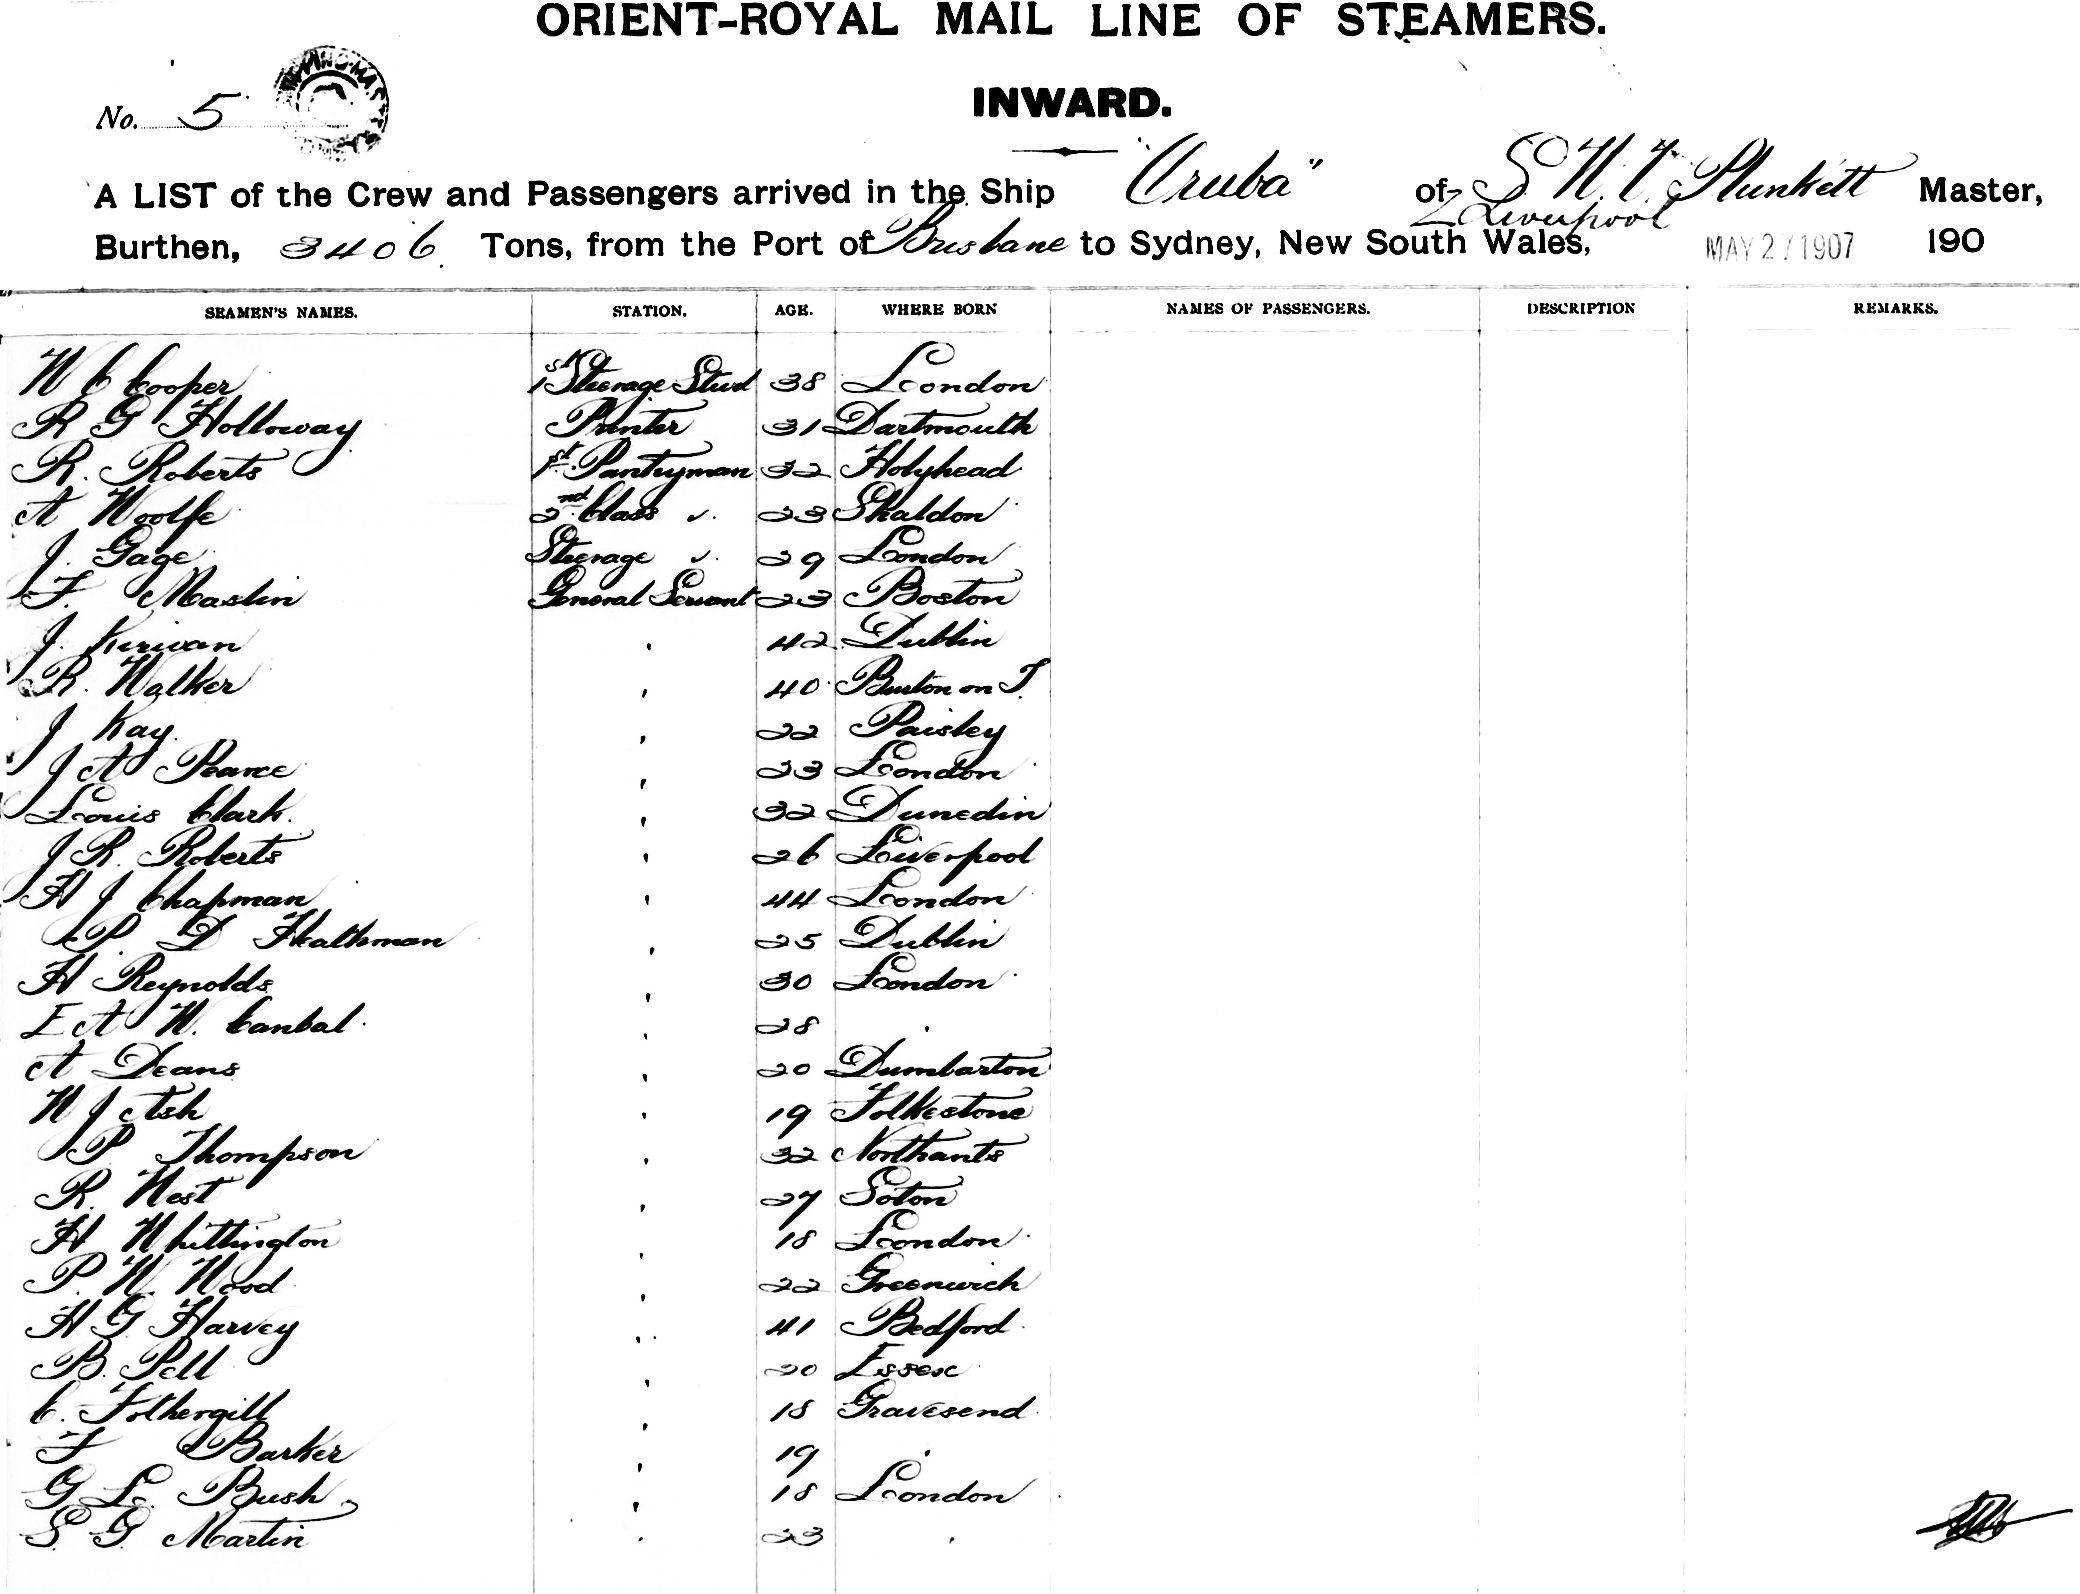 ORIENT-ROYAL MAIL LINE OF STEAMERS.
No. 5
INWARD.
A LIST of the Crew and Passengers arrived in the Ship "Oruba" of Liverpool S. N. Plunkett Master,
Burthen, 3406 Tons, from the Port of Brisbane to Sydney, New South Wales, MAY 2 / 1907 190
SEAMEN'S NAMES. STATION. AGE. WHERE BORN NAMES OF PASSENGERS. DESCRIPTION REMARKS.
W C Cooper 1st Steerage Stwd 38 London
R G Holloway Printer 31 Dartmouth
R. Roberts 1st Pantryman 32 Holyhead
A Woolfe 2nd Class " 23 Shaldon
J. Gage Steerage " 29 London
F. Maslin General Servant 23 Boston
J. Kirwan " 42 Dublin
R. Walker " 40 Burton on T.
J Kay " 22 Paisley
J A Pearce " 23 London
Louis Clark. " 32 Dunedin
J R. Roberts " 26 Liverpool
H J Chapman " 44 London
P. D Heathman " 25 Dublin
H Reynolds " 30 London
E A W. Canbal " 28 "
A Deans " 20 Dumbarton
W J Ash " 19 Folkestone
P Thompson " 32 Northants
R. West " 27 Soton
H Whittington " 18 London
P. W. Wood " 22 Greenwich
H G Harvey " 41 Bedford
B. Pell " 20 Essex
C. Fothergill " 18 Gravesend
F Barker " 19 "
G L. Bush " 18 London
S. G. Martin " 23 "